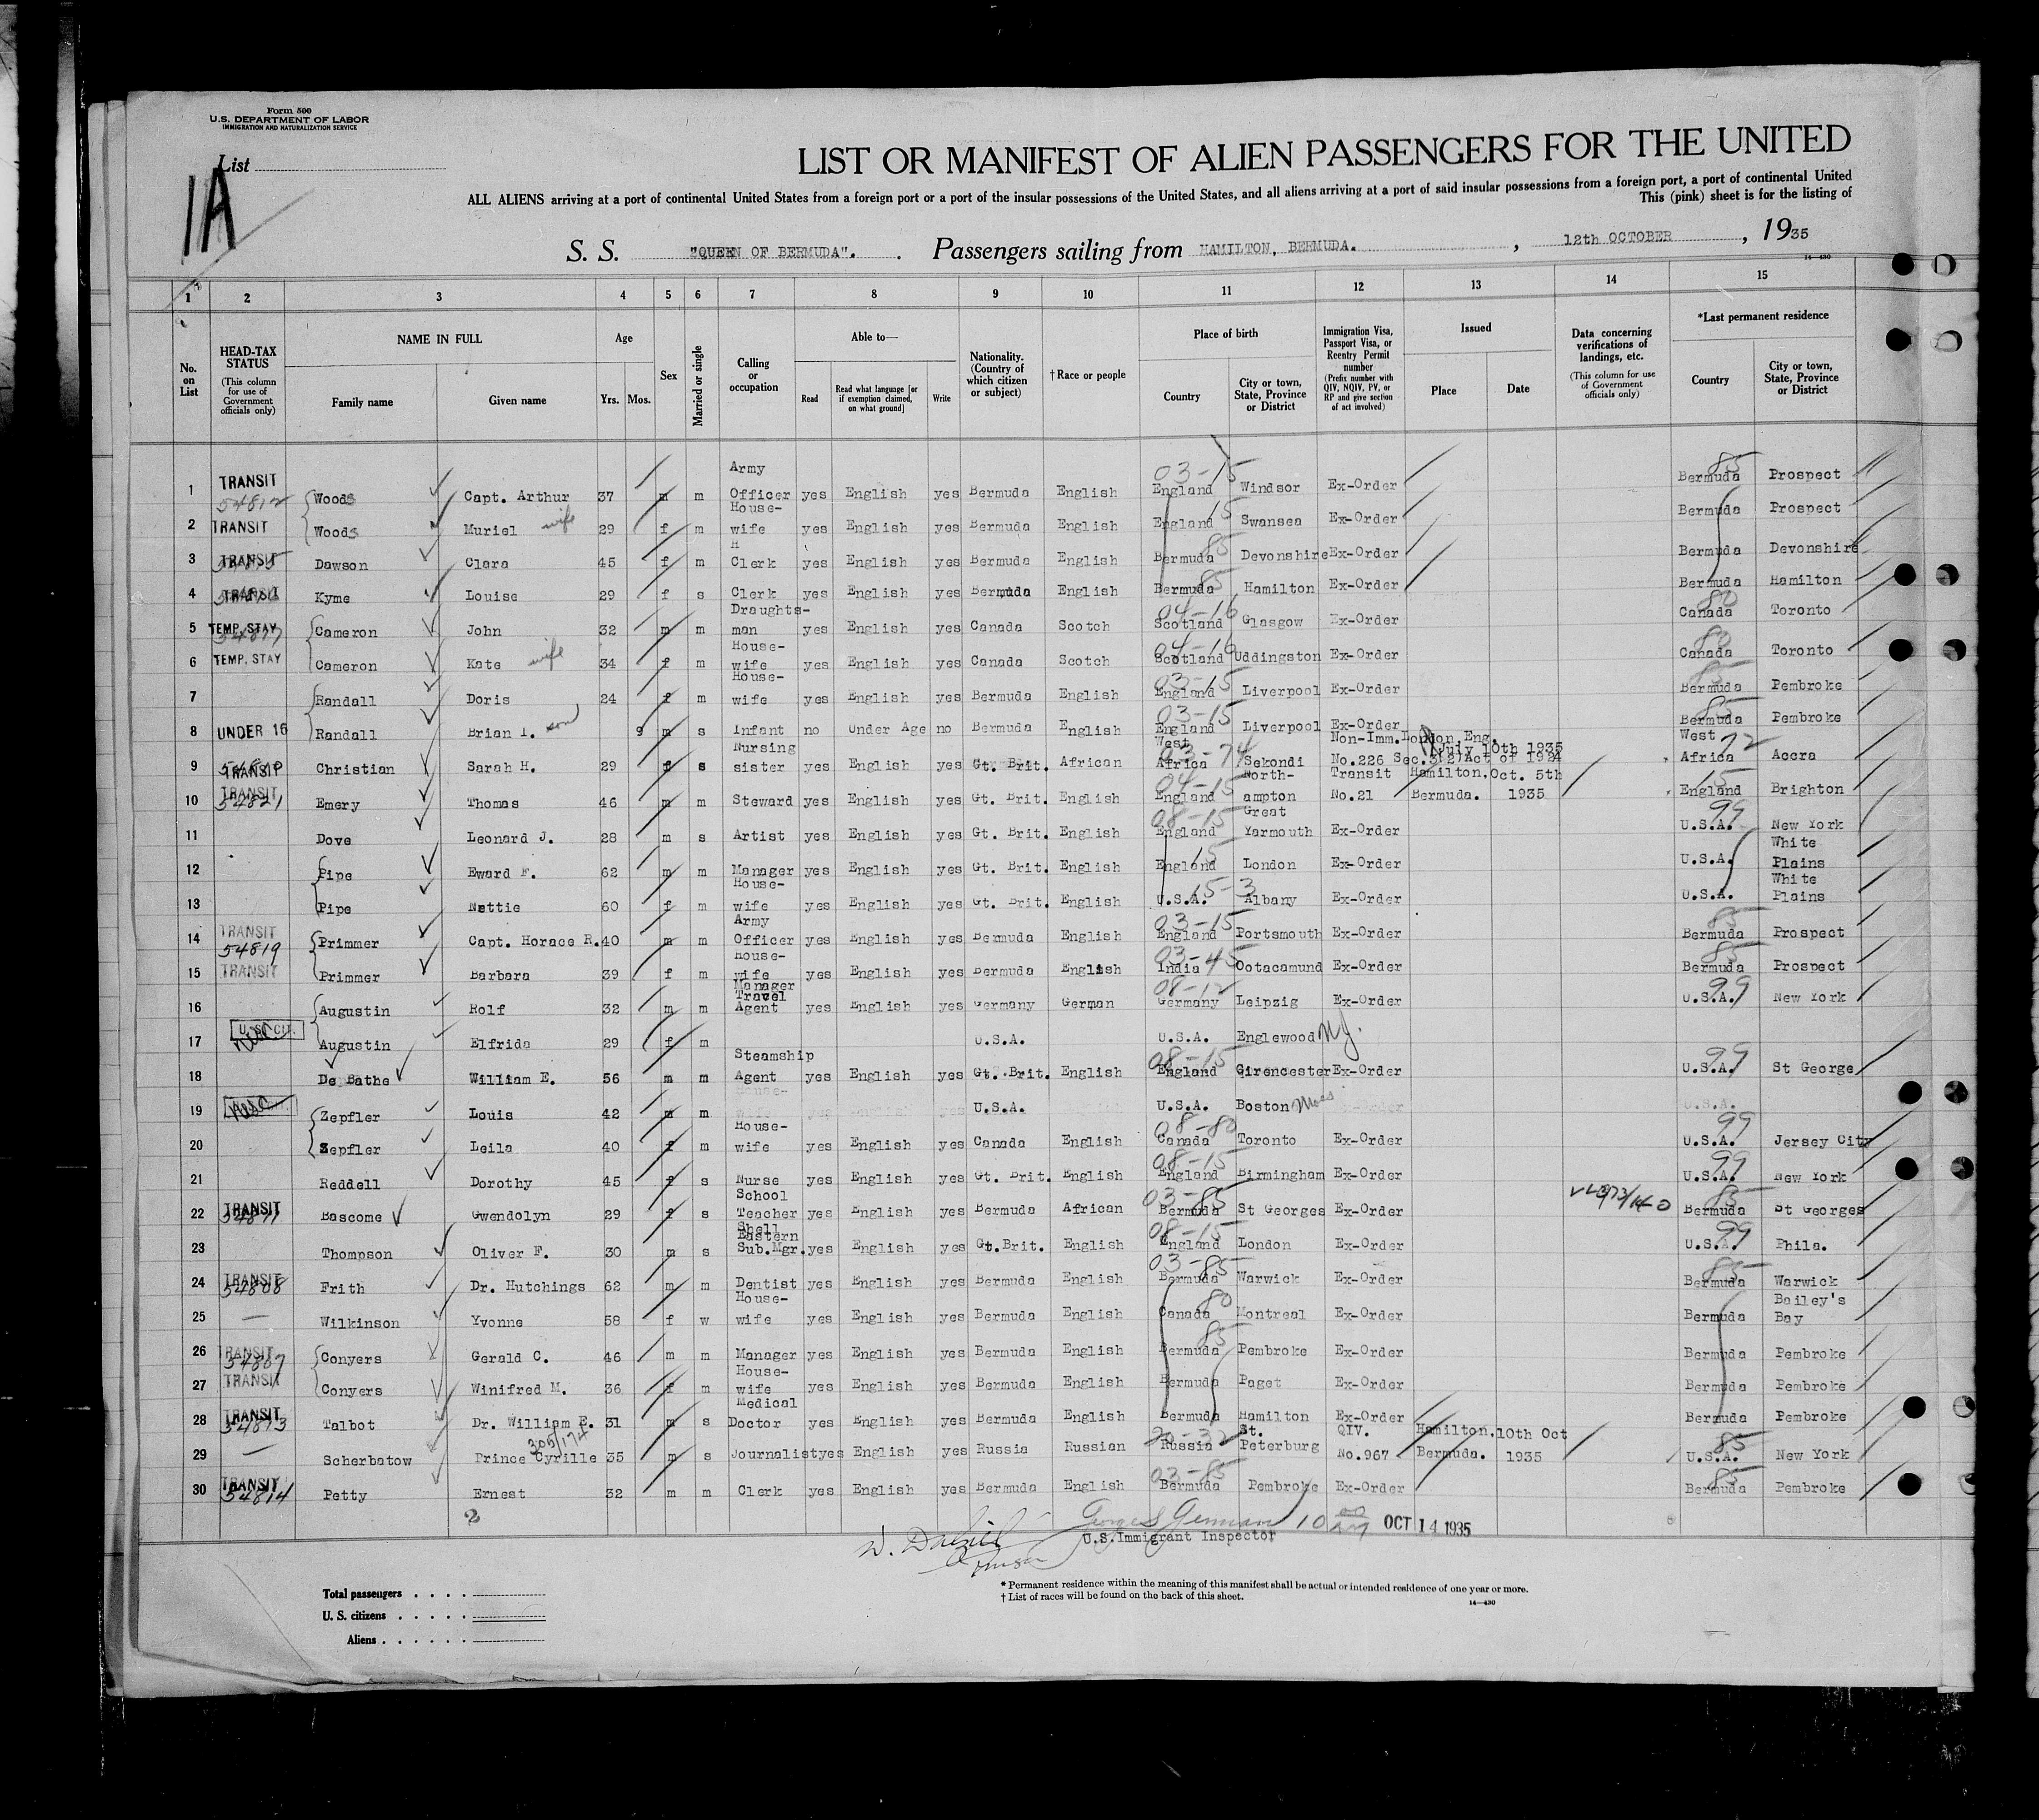 Form 500
U.S. DEPARTMENT OF LABOR
IMMIGRATION AND NATURALIZATION SERVICE
List
1A
LIST OR MANIFEST OF ALIEN PASSENGERS FOR THE UNITED
ALL ALIENS arriving at a port of continental United States from a foreign port or a port of the insular possessions of the United States, and all aliens arriving at a port of said insular possessions from a foreign port, a port of continental United
This (pink) sheet is for the listing of
S. S. "QUEEN OF BERMUDA". Passengers sailing from HAMILTON, BERMUDA. , 12th OCTOBER , 1935
14—430
1 2 3 4 5 6 7 8 9 10 11 12 13 14 15
No. on List
HEAD-TAX STATUS (This column for use of Government officials only)
NAME IN FULL Family name Given name
Age Yrs. Mos.
Sex
Married or single
Calling or occupation
Able to— Read Read what language [or if exemption claimed, on what ground] Write
Nationality. (Country of which citizen or subject)
† Race or people
Place of birth Country City or town, State, Province or District
Immigration Visa, Passport Visa, or Reentry Permit number (Prefix number with QIV, NQIV, PV, or RP and give section of act involved)
Issued Place Date
Data concerning verifications of landings, etc. (This column for use of Government officials only)
*Last permanent residence Country City or town, State, Province or District
1 TRANSIT 54812 Woods Capt. Arthur 37 m m Army Officer yes English yes Bermuda English 03-15 England Windsor Ex-Order 85 Bermuda Prospect
2 TRANSIT Woods Muriel wife 29 f m House-wife yes English yes Bermuda English 15 England Swansea Ex-Order Bermuda Prospect
3 TRANSIT Dawson Clara 45 f m H Clerk yes English yes Bermuda English 85 Bermuda Devonshire Ex-Order Bermuda Devonshire
4 TRANSIT Kyme Louise 29 f s Clerk yes English yes Bermuda English 85 Bermuda Hamilton Ex-Order Bermuda Hamilton
5 TEMP. STAY 54817 Cameron John 32 m m Draughts-man yes English yes Canada Scotch 04-16 Scotland Glasgow Ex-Order 80 Canada Toronto
6 TEMP. STAY Cameron Kate wife 34 f m House-wife yes English yes Canada Scotch 04-16 Scotland Uddingston Ex-Order 80 Canada Toronto
7 Randall Doris 24 f m House-wife yes English yes Bermuda English 03-15 England Liverpool Ex-Order 85 Bermuda Pembroke
8 UNDER 16 Randall Brian I. son 9 m s Infant no Under Age no Bermuda English 03-15 England Liverpool Ex-Order 85 Bermuda Pembroke
9 TRANSIT Christian Sarah H. 29 f s Nursing sister yes English yes Gt. Brit. African 03-74 West Africa Sekondi Non-Imm. London, Eng. No.226 Sec.3(2) Act of 1924 July 10th 1935 72 West Africa Accra
10 TRANSIT 54821 Emery Thomas 46 m m Steward yes English yes Gt. Brit. English 04-15 England North-ampton Transit No.21 Hamilton, Bermuda. Oct. 5th 1935 15 England Brighton
11 Dove Leonard J. 28 m s Artist yes English yes Gt. Brit. English 08-15 England Great Yarmouth Ex-Order 99 U.S.A. New York
12 Pipe Eward F. 62 m m Manager yes English yes Gt. Brit. English 15 England London Ex-Order U.S.A. White Plains
13 Pipe Nettie 60 f m House-wife yes English yes Gt. Brit. English 15-3 U.S.A. Albany Ex-Order U.S.A. White Plains
14 TRANSIT 54819 Primmer Capt. Horace R. 40 m m Army Officer yes English yes Bermuda English 03-15 England Portsmouth Ex-Order 85 Bermuda Prospect
15 TRANSIT Primmer Barbara 39 f m House-wife yes English yes Bermuda English 03-45 India Ootacamund Ex-Order 85 Bermuda Prospect
16 Augustin Rolf 32 m m Manager Travel Agent yes English yes Germany German 08-12 Germany Leipzig Ex-Order 99 U.S.A. New York
17 U.S. CIT. Augustin Elfrida 29 f m U.S.A. U.S.A. Englewood NJ.
18 De Bathe William E. 56 m m Steamship Agent yes English yes Gt. Brit. English 08-15 England Cirencester Ex-Order 99 U.S.A. St George
19 Zepfler Louis 42 m m U.S.A. U.S.A. Boston Mass
20 Zepfler Leila 40 f m House-wife yes English yes Canada English 08-80 Canada Toronto Ex-Order 99 U.S.A. Jersey City
21 Reddell Dorothy 45 f s Nurse yes English yes Gt. Brit. English 08-15 England Birmingham Ex-Order 99 U.S.A. New York
22 TRANSIT 54811 Bascome Gwendolyn 29 f s School Teacher yes English yes Bermuda African 03-85 Bermuda St Georges Ex-Order 85 Bermuda St Georges
23 Thompson Oliver F. 30 m s Shell Eastern Sub.Mgr. yes English yes Gt.Brit. English 08-15 England London Ex-Order 99 U.S.A. Phila.
24 TRANSIT 54808 Frith Dr. Hutchings 62 m m Dentist yes English yes Bermuda English 03-85 Bermuda Warwick Ex-Order 85 Bermuda Warwick
25 — Wilkinson Yvonne 58 f w House-wife yes English yes Bermuda English 80 Canada Montreal Ex-Order Bermuda Bailey's Bay
26 TRANSIT 54807 Conyers Gerald C. 46 m m Manager yes English yes Bermuda English 85 Bermuda Pembroke Ex-Order Bermuda Pembroke
27 TRANSIT Conyers Winifred M. 36 f m House-wife yes English yes Bermuda English Bermuda Paget Ex-Order Bermuda Pembroke
28 TRANSIT 54813 Talbot Dr. William E. 31 m s Medical Doctor yes English yes Bermuda English Bermuda Hamilton Ex-Order Bermuda Pembroke
29 — Scherbatow Prince Cyrille 305/174 35 m s Journalist yes English yes Russia Russian 20-32 Russia St. Peterburg QIV. No.967 Hamilton, Bermuda. 10th Oct 1935 85 U.S.A. New York
30 TRANSIT 54814 Petty Ernest 32 m m Clerk yes English yes Bermuda English 03-85 Bermuda Pembroke Ex-Order 85 Bermuda Pembroke
2
10 OCT 14 1935
U.S. Immigrant Inspector
Total passengers . . . .
U. S. citizens . . . . .
Aliens . . . . . .
* Permanent residence within the meaning of this manifest shall be actual or intended residence of one year or more.
† List of races will be found on the back of this sheet.
14—430